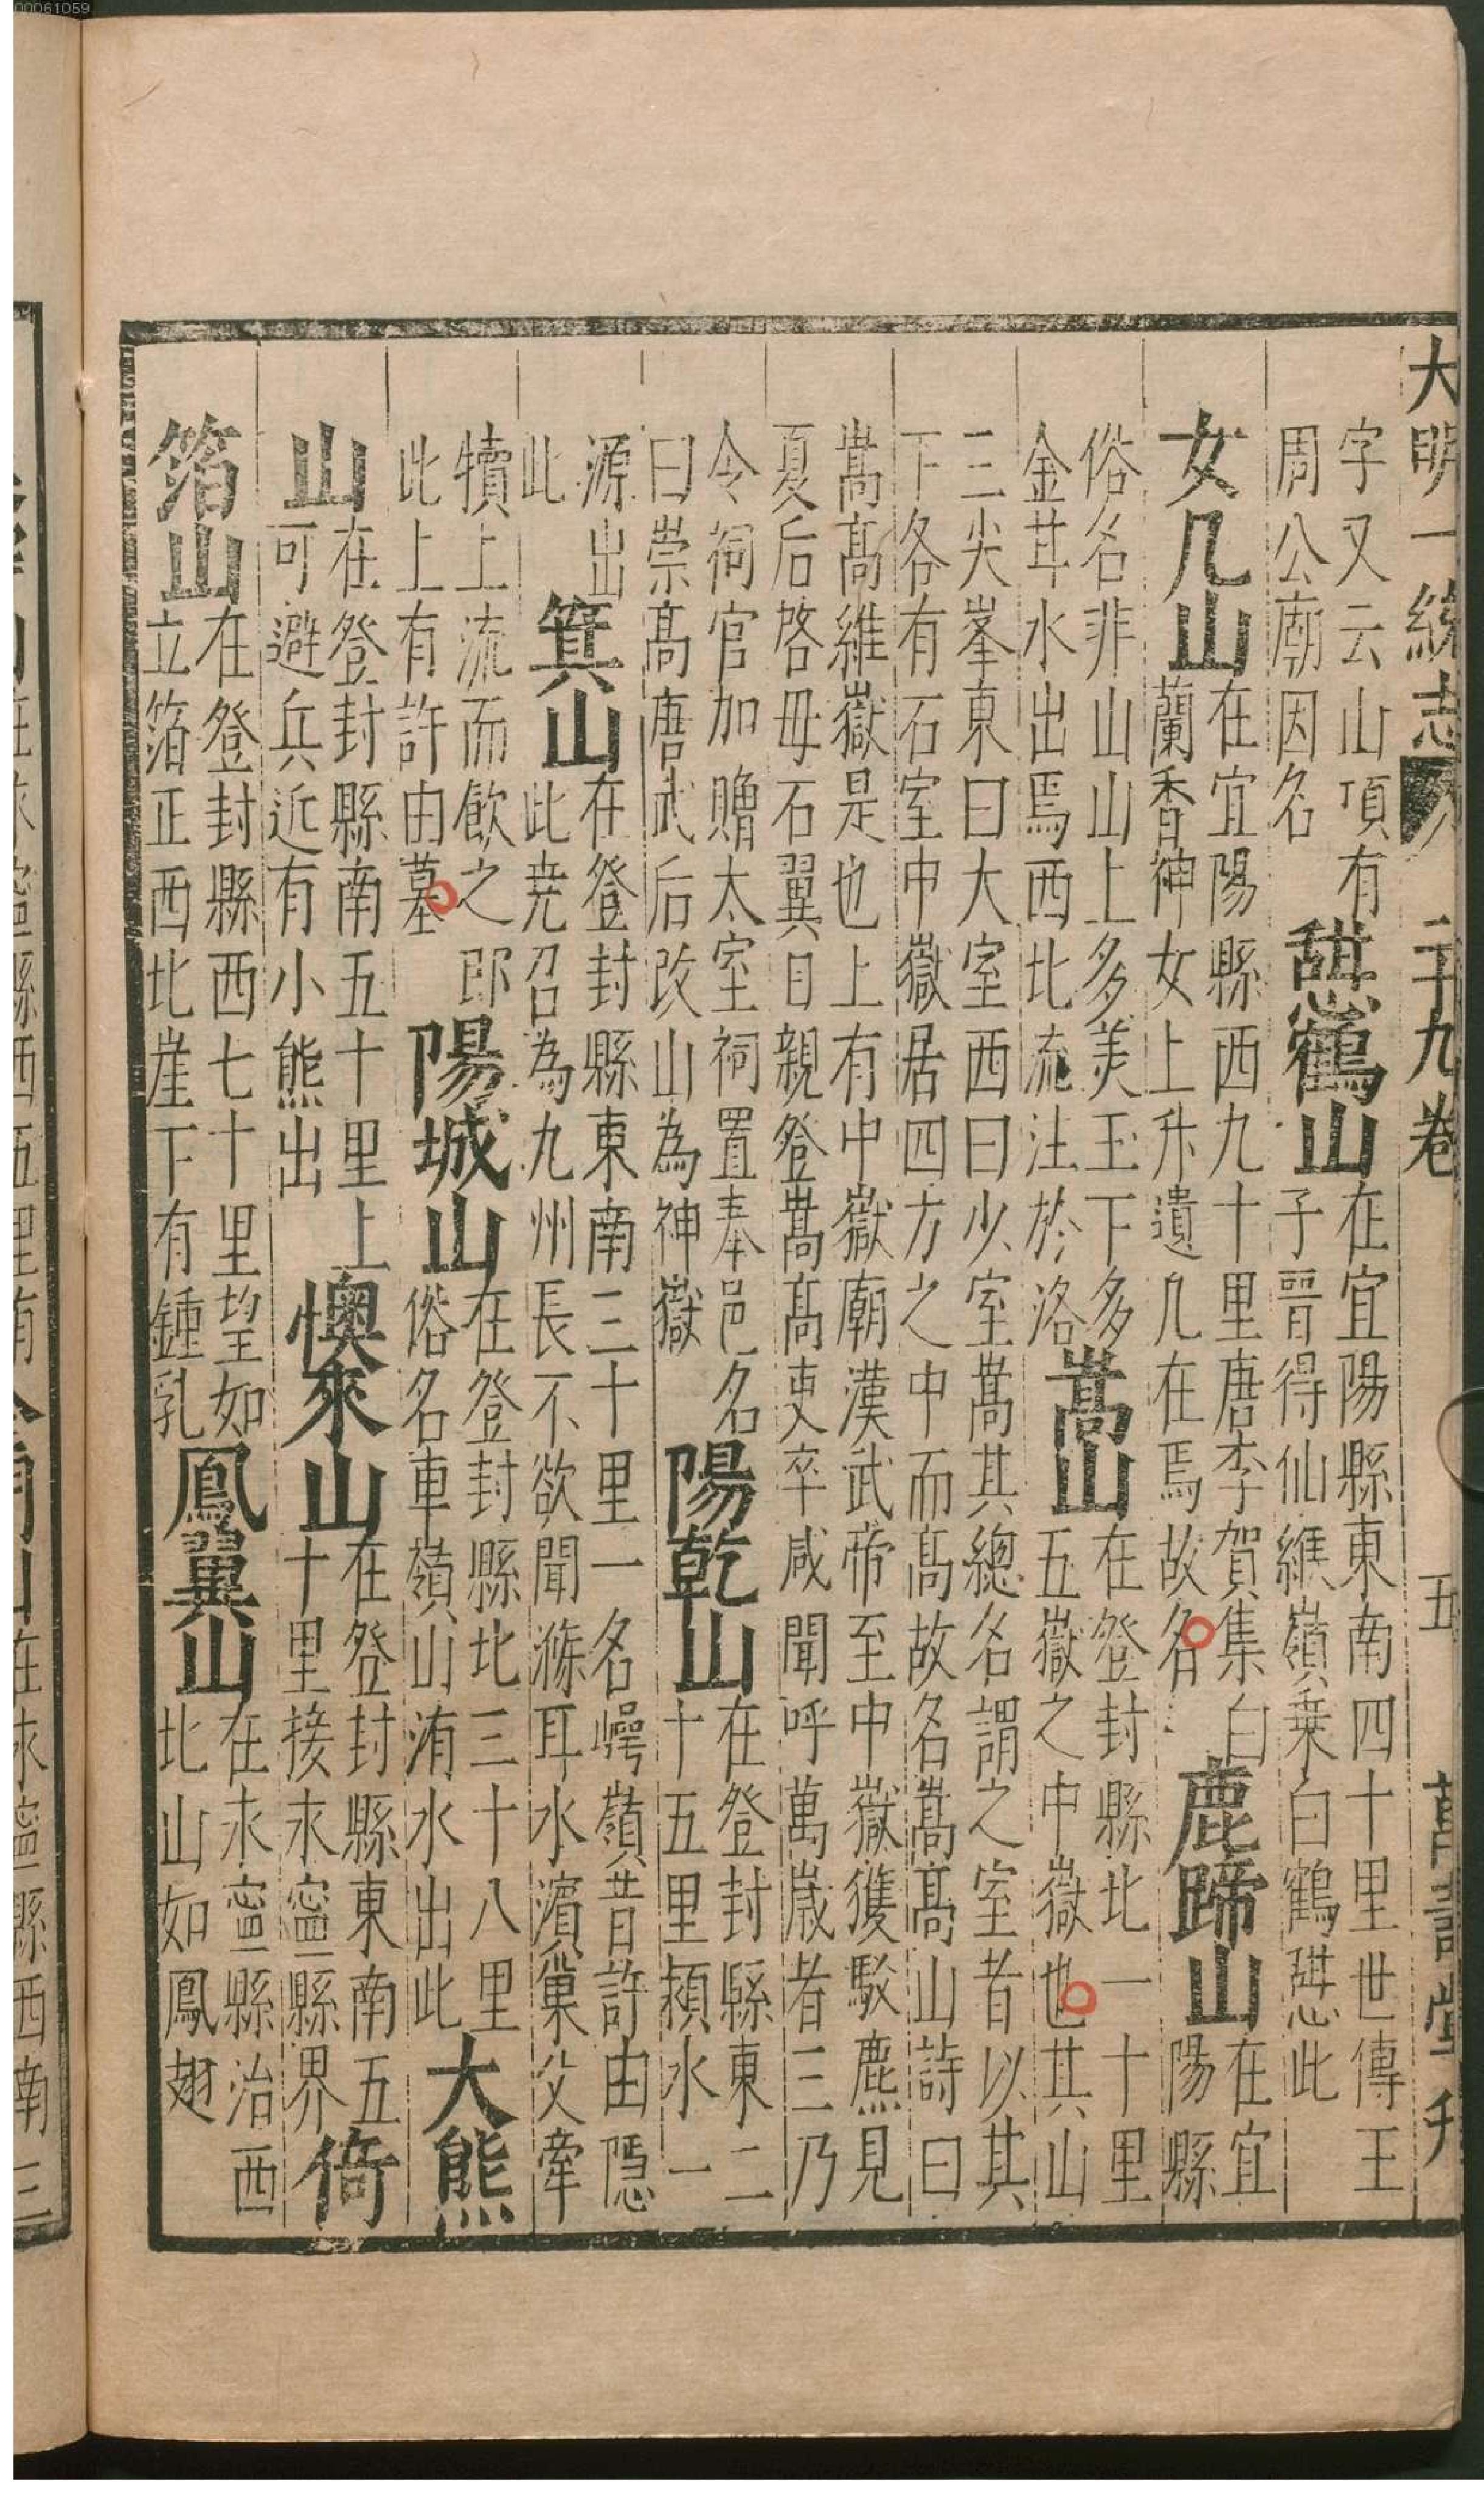 00061059
大明一統志 二十九卷 五 萬壽堂刋
字又云山頂有
周公廟因名
憇鶴山
在宜陽縣東南四十里世傳王
子晉得仙緱嶺乗白鶴憇此
女几山
在宜陽縣西九十里唐李賀集
蘭香神女上升遺几在焉故名
鹿蹄山
在宜
陽縣
白
俗名非山山上多美玉下多
金其水出焉西北流注於洛
嵩山
在登封縣北一十里
五嶽之中嶽也其山
三尖峯東曰大室西曰少室嵩其總名謂之室者以其
下各有石室中嶽居四方之中而高故名嵩高山詩曰
嵩高維嶽是也上有中嶽廟漢武帝至中嶽獲駁麃見
夏后啓毋石翼日親登嵩高吏卒咸聞呼萬歲者三乃
令祠官加贈太室祠置奉邑名
曰崇高唐武后改山為神嶽
陽乾山
在登封縣東二
十五里潁水一
源出
此
箕山
在登封縣東南三十里一名崿嶺昔許由隱
此尭召為九州長不欲聞滌耳水濱巢父牽
犢上流而飲之即
此上有許由墓
陽城山
在登封縣北三十八里
俗名車嶺山洧水出此
大熊
山
在登封縣南五十里上
可避兵近有小熊出
懊來山
在登封縣東南五
十里接永寧縣界
倚
箔山
在登封縣西七十里望如
立箔正西北崖下有鍾乳
鳳翼山
在永寧縣治西
北山如鳳翅